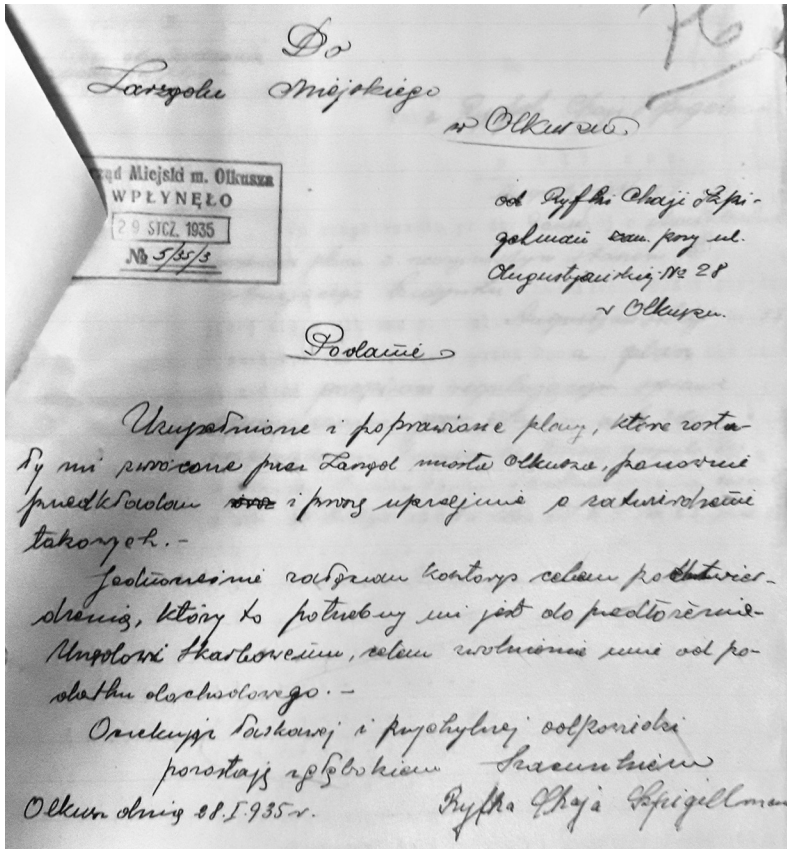 76
Do
Zarządu Miejskiego
w Olkuszu
ząd Miejski m. Olkusza
WPŁYNĘŁO
29 STCZ. 1935
№ 5/35/3
od Ryfki Chaji Szpi-
gelman zam. przy ul.
Augustjańskiej № 28
w Olkuszu.
Podanie
Uzupełnione i poprawione plany, które zosta-
ły mi zwrócone przez Zarząd miasta Olkusza, ponownie
przedkładam i proszę uprzejmie o zatwierdzenie
takowych. -
Jednocześnie załączam kosztorys celem potwier-
dzenia, który to potrzebny mi jest do przedłożenia
Urzędowi Skarbowemu, celem zwolnienia mnie od po-
datku dochodowego. -
Oczekując łaskawej i przychylnej odpowiedzi
pozostaję z głębokiem szacunkiem
Olkusz dnia 28.I.935 r. Ryfka Chaja Szpigellman